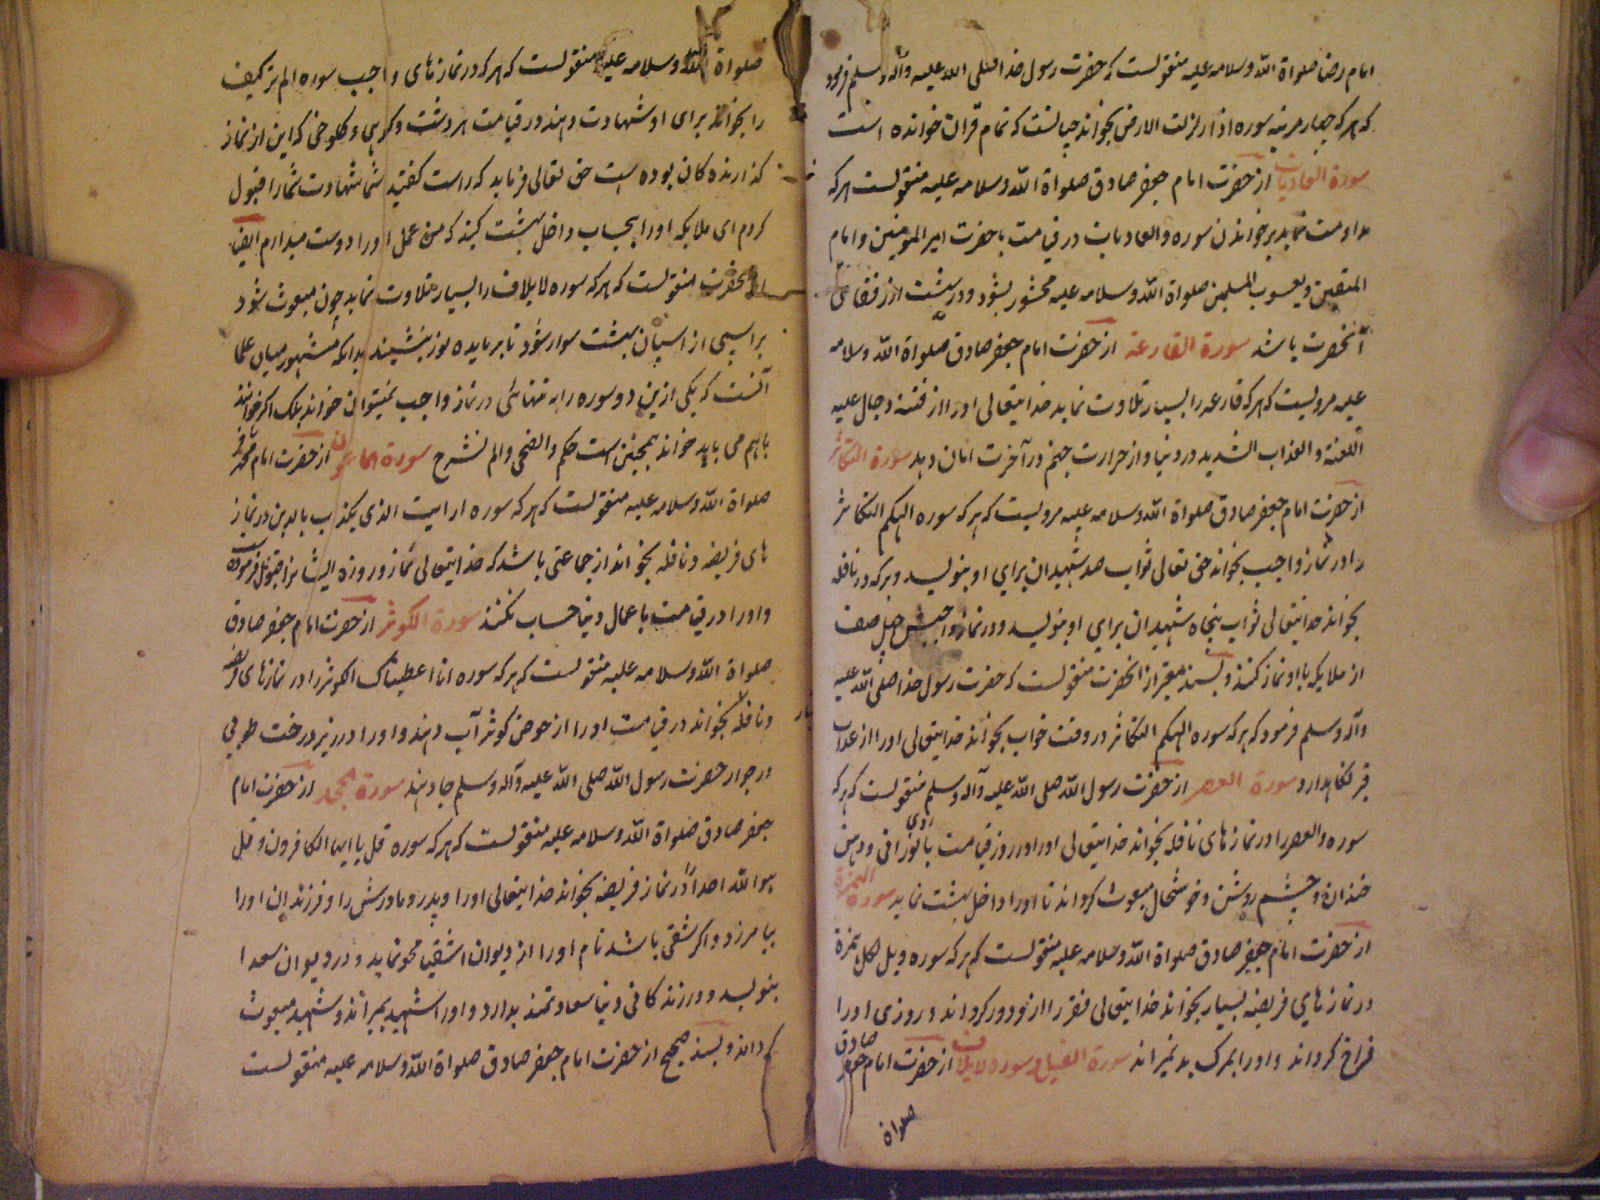 امام رضا صلواة الله وسلامه علیه منقولست که حضرت رسول خدا صلی الله علیه وآله وسلم فرمود
که هر که چهار مرتبه سوره اذا زلزلت الارض بخواند چنانست که تمام قران خوانده است
سورة العادیات از حضرت امام جعفر صادق صلواة الله وسلامه علیه منقولست هر که
مداومت نماید بر خواندن سوره والعادیات در قیامت با حضرت امیرالمؤمنین وامام
المتقین ویعسوب المسلمین صلواة الله وسلامه علیه محشور بشود ودر بهشت از رفقای
آنحضرت باشد سورة القارعة از حضرت امام جعفر صادق صلواة الله وسلامه
علیه مرویست که هر که قارعه را بسیار تلاوت نماید خدایتعالی اورا از فتنه دجال علیه
اللعنة والعذاب الشدید در دنیا واز حرارت جهنم در آخرت امان دهد سورة التکاثر
از حضرت امام جعفر صادق صلواة الله وسلامه علیه مرویست که هر که سوره الهکم التکاثر
را در نماز واجب بخواند حق تعالی ثواب صد شهیدان برای او بنویسد وهر که در نافله
بخواند خدایتعالی ثواب پنجاه شهیدان برای او بنویسد ودر نماز واجبش چهل صف
از ملایکه با او نماز کنند وبسند معتبر از آنحضرت منقولست که حضرت رسول خدا صلی الله علیه
وآله وسلم فرمود که هر که سوره الهکم التکاثر در وقت خواب بخواند خدایتعالی اورا از عذاب
قبر نگاهدارد سورة العصر از حضرت رسول الله صلی الله علیه وآله وسلم منقولست که هر که
سوره والعصر را در نماز های نافله بخواند خدایتعالی اورا در روز قیامت با روی نورانی ودهن
خندان وچشم روشن وخوشحال مبعوث گرداند تا اورا داخل بهشت نماید سورة الهمزة
از حضرت امام جعفر صادق صلواة الله وسلامه علیه منقولست که هر که سوره ویل لکل همزة
در نماز های فریضه بسیار بخواند خدایتعالی فقر را از او دور گرداند وروزی اورا
فراخ گرداند واورا بمرک بد نمیراند سورة الفیل وسوره لایلاف از حضرت امام جعفر صادق
صلواة
صلواة الله وسلامه علیه منقولست که هر که در نماز های واجب سوره الم تر کیف
را بخواند برای او شهادت دهند در قیامت هر دشت وکوهی وکلوخی که این از نماز
گذارنده کان بوده است حق تعالی فرماید که راست گفتید شما شهادت شمارا قبول
کردم ای ملایکه اورا بیحساب داخل بهشت کنید که من عمل اورا دوست میدارم ایضا
از آنحضرت منقولست که هر که سوره لایلاف را بسیار تلاوت نماید چون مبعوث شود
بر اسپی از اسپان بهشت سوار شود تا بر مایده نور بنشیند بدانکه مشهور میان علما
آنست که یکی ازین دو سوره را به تنهائی در نماز واجب نمیتوان خواند بلک اگر خوانند
باهم می باید خواند همچنین است حکم والضحی والم نشرح سورة الماعون از حضرت امام محمد باقر
صلواة الله وسلامه علیه منقولست که هر که سوره ارایت الذی یکذب بالدین در نماز
های فریضه ونافله بخواند از جماعتی باشد که خدایتعالی نماز وروزه ایشانرا قبول فرموده
واورا در قیامت باعمال دنیا حساب نکنند سورة الکوثر از حضرت امام جعفر صادق
صلواة الله وسلامه علیه منقولست که هر که سوره انا اعطیناک الکوثر را در نماز های فریضه
ونافله بخواند در قیامت اورا از حوض کوثر آب دهند واورا در زیر درخت طوبی
در جوار حضرت رسول الله صلی الله علیه وآله وسلم جا دهند سورة الجحد از حضرت امام
جعفر صادق صلواة الله وسلامه علیه منقولست که هر که سوره قل یا ایها الکافرون وقل
هو الله احد را در نماز فریضه بخواند خدایتعالی اورا وپدر ومادرش را وفرزندان اورا
بیامرزد واگر شقی باشد نام اورا از دیوان اشقیا محو نماید ودر دیوان سعدا
بنویسد ودر زندکانی دنیا سعادتمند بدارد واورا شهید بمیراند وشهید مبعوث
گرداند وبسند صحیح از حضرت امام جعفر صادق صلواة الله وسلامه علیه منقولست